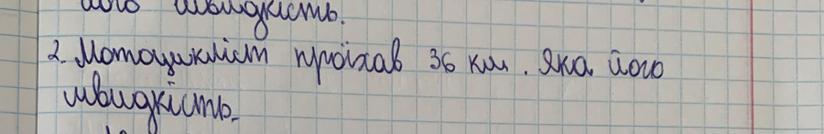 його швидкість.
2. Мотоцикліст проїхав 36 км. Яка його
швидкість.